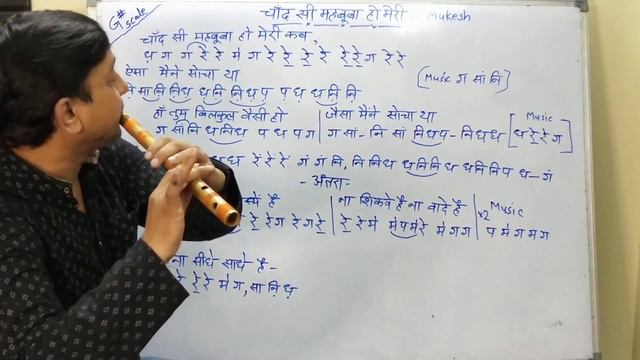 G# scale
चाँद सी महबूबा हो मेरी - Mukesh
चाँद सी महबूबा हो मेरी कब,
ध ग ग रे रे मे ग रे रे रे रे रे रे ग रे रे
ऐसा मैंने सोचा था
(Music ग सां नि)
सा नि नि ध ध नि नि ध प प ध ध नि नि
हाँ तुम बिलकुल वैसी हो | जैसा मैंने सोचा था
Music
ग सा नि ध नि ध प ध प ग | ग सां- नि सां नि ध प - नि ध ध [ध रे रे ग]
ध रे रे रे गं गं नि, नि नि ध ध नि नि ध ध नि नि प ध - गं
- अंतरा -
है | ना शिकवे है ना वादे है | x2 Music
रे रे ग रे ग रे | रे रे मे मे प मे रे मे ग ग | प मे ग म ग
ना सीधे साधे है -
रे रे रे मे ग, सा नि ध